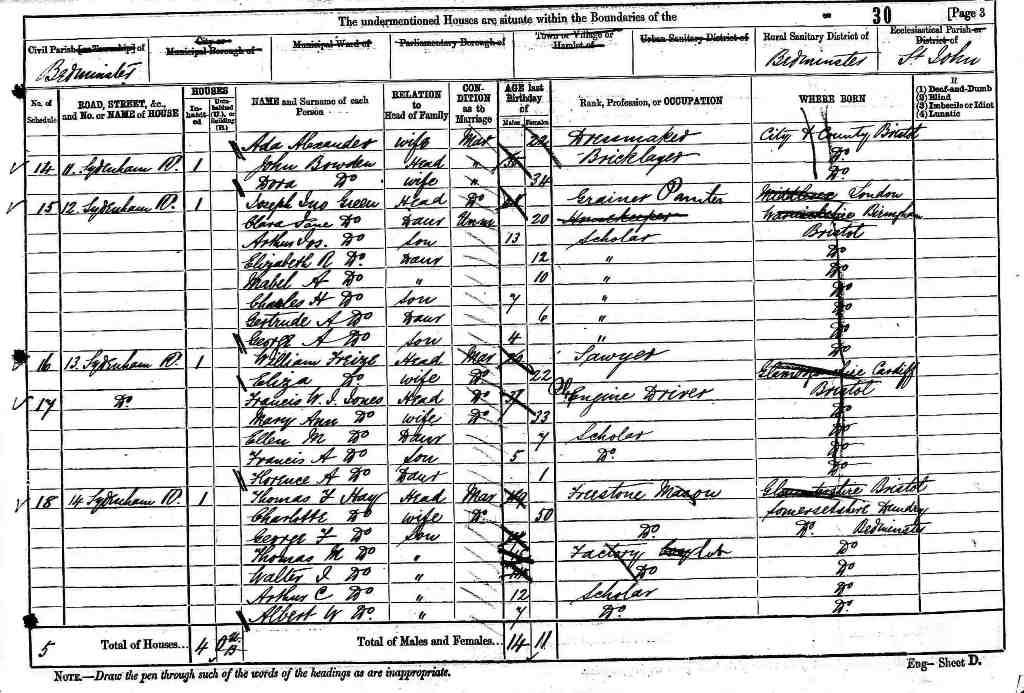 The undermentioned Houses are situate within the Boundaries of the 30 [Page 3
Civil Parish [or Township] of City or Municipal Borough of Municipal Ward of Parliamentary Borough of Town or Village or Hamlet of Urban Sanitary District of Rural Sanitary District of Ecclesiastical Parish or District of
Bedminster Bedminster St John
No. of Schedule ROAD, STREET, &c., and No. or NAME of HOUSE HOUSES In-habit-ed Unin-habited (U.), or Building (B.) NAME and Surname of each Person RELATION to Head of Family CON-DITION as to Marriage AGE last Birthday of Males Females Rank, Profession, or OCCUPATION WHERE BORN If (1) Deaf-and-Dumb (2) Blind (3) Imbecile or Idiot (4) Lunatic
Ada Alexander wife Mar 22 Dressmaker City & County Bristol
14 11. Sydenham Rd. 1 John Bowden Head " Bricklayer Do
Dora Do wife " 34 Do
15 12. Sydenham Rd. 1 Joseph Jno Green Head Do Grainer Painter Middlesex London
Clara Jane Do Daur Unm 20 Housekeeper Warwickshire Birmgham
Arthur Jos. Do Son 13 Scholar Bristol
Elizabeth R Do. Daur 12 " Do
Mabel A Do " 10 " Do
Charles H Do Son 7 " Do
Gertrude A Do Daur 6 " Do
George A Do Son 4 " Do
16 13. Sydenham Rd. 1 William Freize Head Mar Sawyer Do
Eliza Do wife Do 22 Cardiff
17 Do Francis W. J. Jones Head Do Engine Driver Bristol
Mary Ann Do wife Do 33 Do
Ellen M Do Daur 7 Scholar Do
Francis A Do Son 5 Do. Do
Florence A Do Daur 1 Do
18 14 Sydenham Rd. 1 Thomas F Hay Head Mar 49 Freestone Mason Gloucestershire Bristol
Charlotte Do wife Do 50 Somersetshire Dundry
George F Do Son Do Do. Bedminster
Thomas M Do " Factory Do
Walter J Do " Do Do
Arthur C Do " 12 Scholar Do
Albert W Do. " 7 Do. Do.
5 Total of Houses... 4 Total of Males and Females... 14 11
NOTE.—Draw the pen through such of the words of the headings as are inappropriate. Eng- Sheet D.